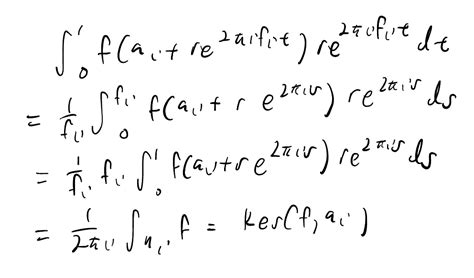 ∫₀¹ f(aᵢ + re^{2πi fᵢ t}) re^{2πi fᵢ t} dt
= 1/fᵢ ∫₀^{fᵢ} f(aᵢ + r e^{2πis}) re^{2πis} ds
= 1/fᵢ · fᵢ ∫₀¹ f(aᵢ + re^{2πis}) re^{2πis} ds
= 1/2πi ∫_{uᵢ} f = Res(f, aᵢ)